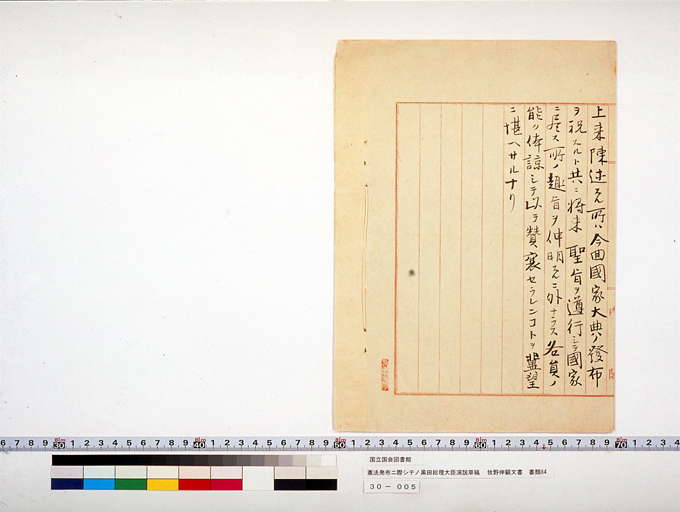 上来陳述スル所ハ今回國家大典ノ發布
ヲ祝スルト共ニ将来 聖旨ヲ遵行シテ國家
ニ尽ス所ノ趣旨ヲ伸明スルニ外ナラス各員ノ
能ク体諒シテ以テ賛襄セラレンコトヲ冀望
ニ堪ヘサルナリ
6 7 8 9 30 1 2 3 4 5 6 7 8 9 40 1 2 3 4 5 6 7 8 9 50 1 2 3 4 5 6 7 8 9 60 1 2 3 4 5 6 7 8 9 70 1 2 3 4
国立国会図書館
憲法発布ニ際シテノ黒田総理大臣演説草稿 牧野伸顕文書 書類84
30－005